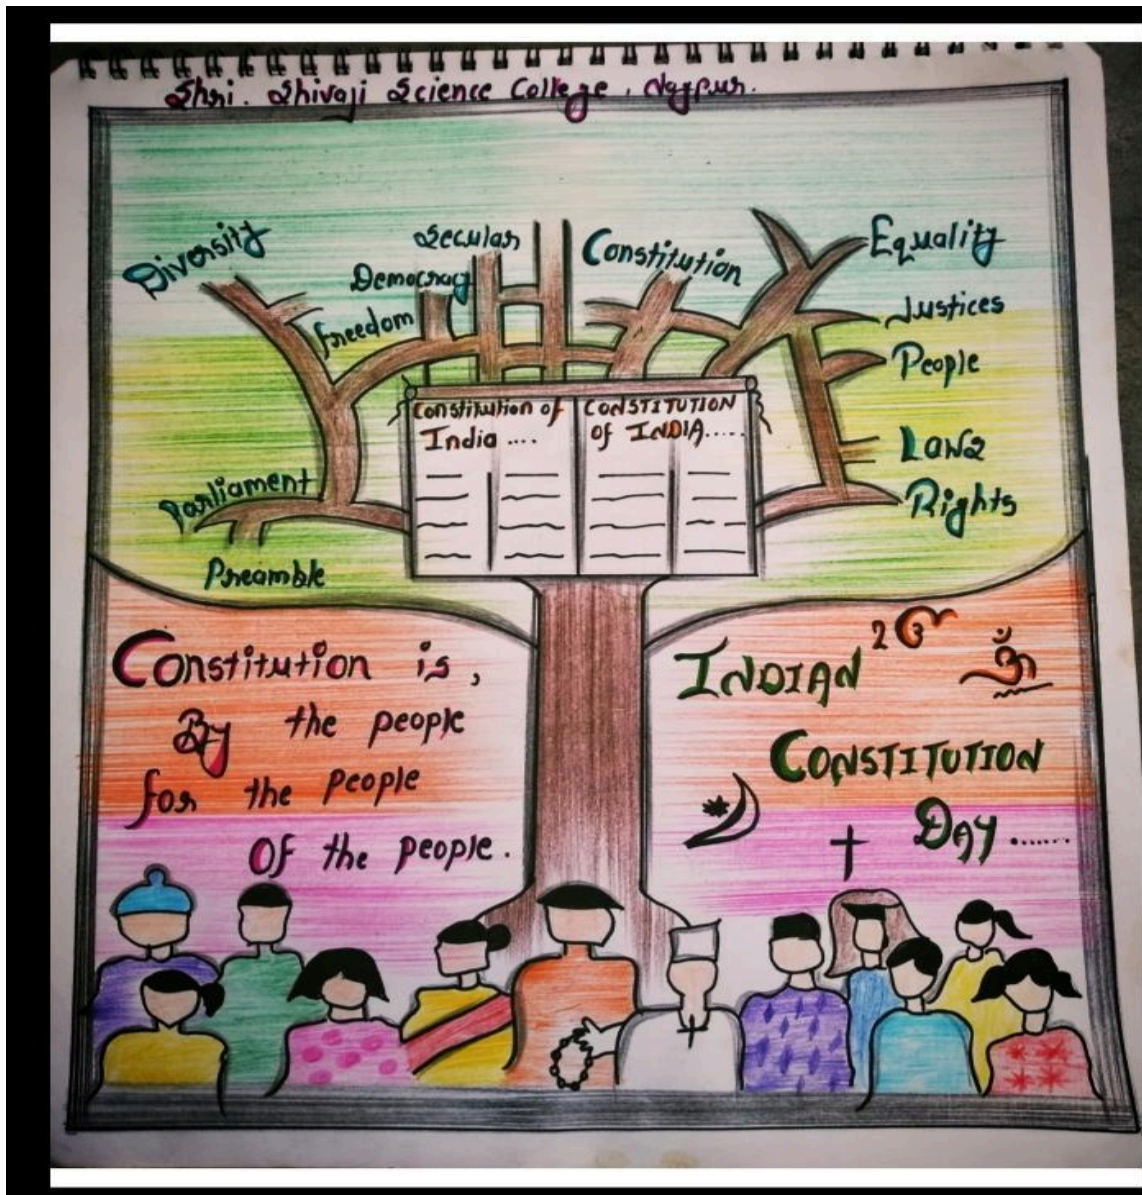 Shri. Shivaji Science College, Nagpur.
Diversity
Secular
Democracy
freedom
Constitution
Equality
Justices
People
Laws
Rights
Parliament
Preamble
Constitution of
India ....
CONSTITUTION
of INDIA.....
Constitution is,
By the people
for the people
Of the people.
INDIAN
ॐ
CONSTITUTION
DAY .......